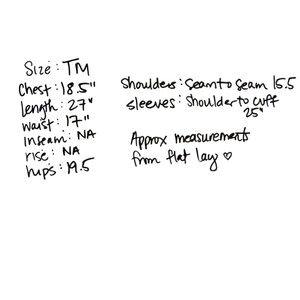 Size: TM
Chest: 18.5"
Length: 27"
Waist: 17"
Inseam: NA
rise: NA
hips: 19.5
Shoulders: Seam to Seam 15.5
sleeves: Shoulder to cuff
25"
Approx measurements
from flat lay ♡